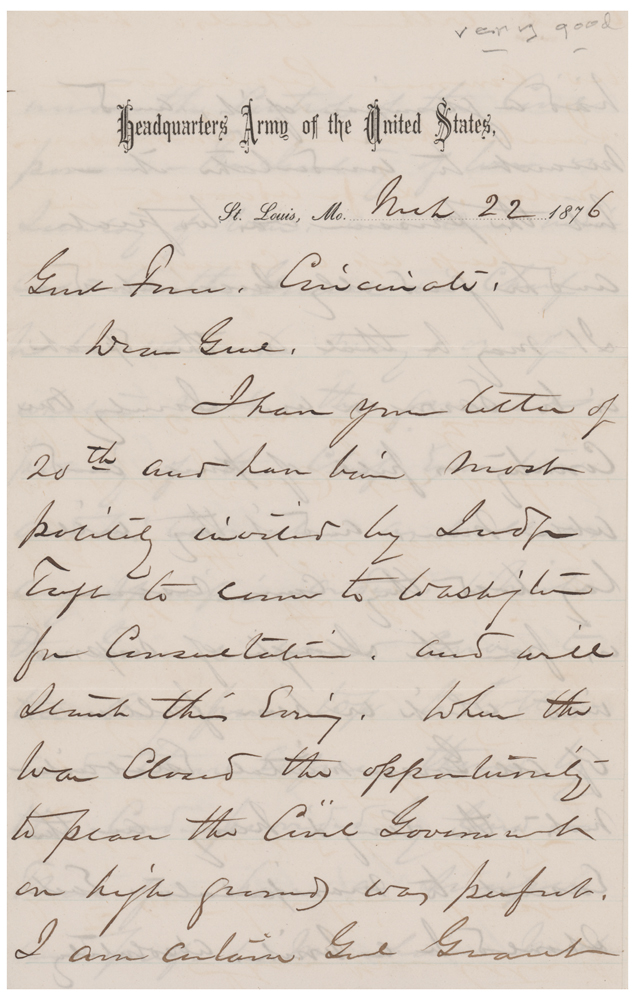 very good
Headquarters Army of the United States,
St. Louis, Mo. Mch 22 1876
Genl Force. Cincinati.
Dear Genl.
I have your letter of
20th and have been most
politely invited by Judge
Taft to come to Washington
for Consultation. and will
start this Evening. When the
War Closed the opportunity
to place the Civil Government
on high ground was perfect.
I am certain Genl Grant